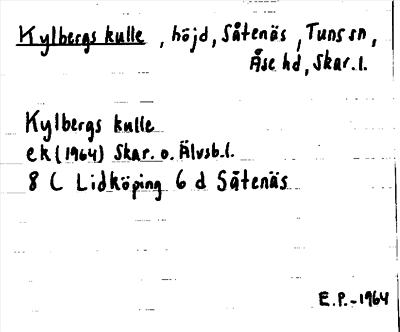 Kylbergs kulle, höjd, Såtenäs, Tuns sn,
Åse hd, Skar. l.
Kylbergs kulle
ek (1964) Skar. o. Älvsb. l.
8 C Lidköping 6 d Såtenäs
E. P. - 1964